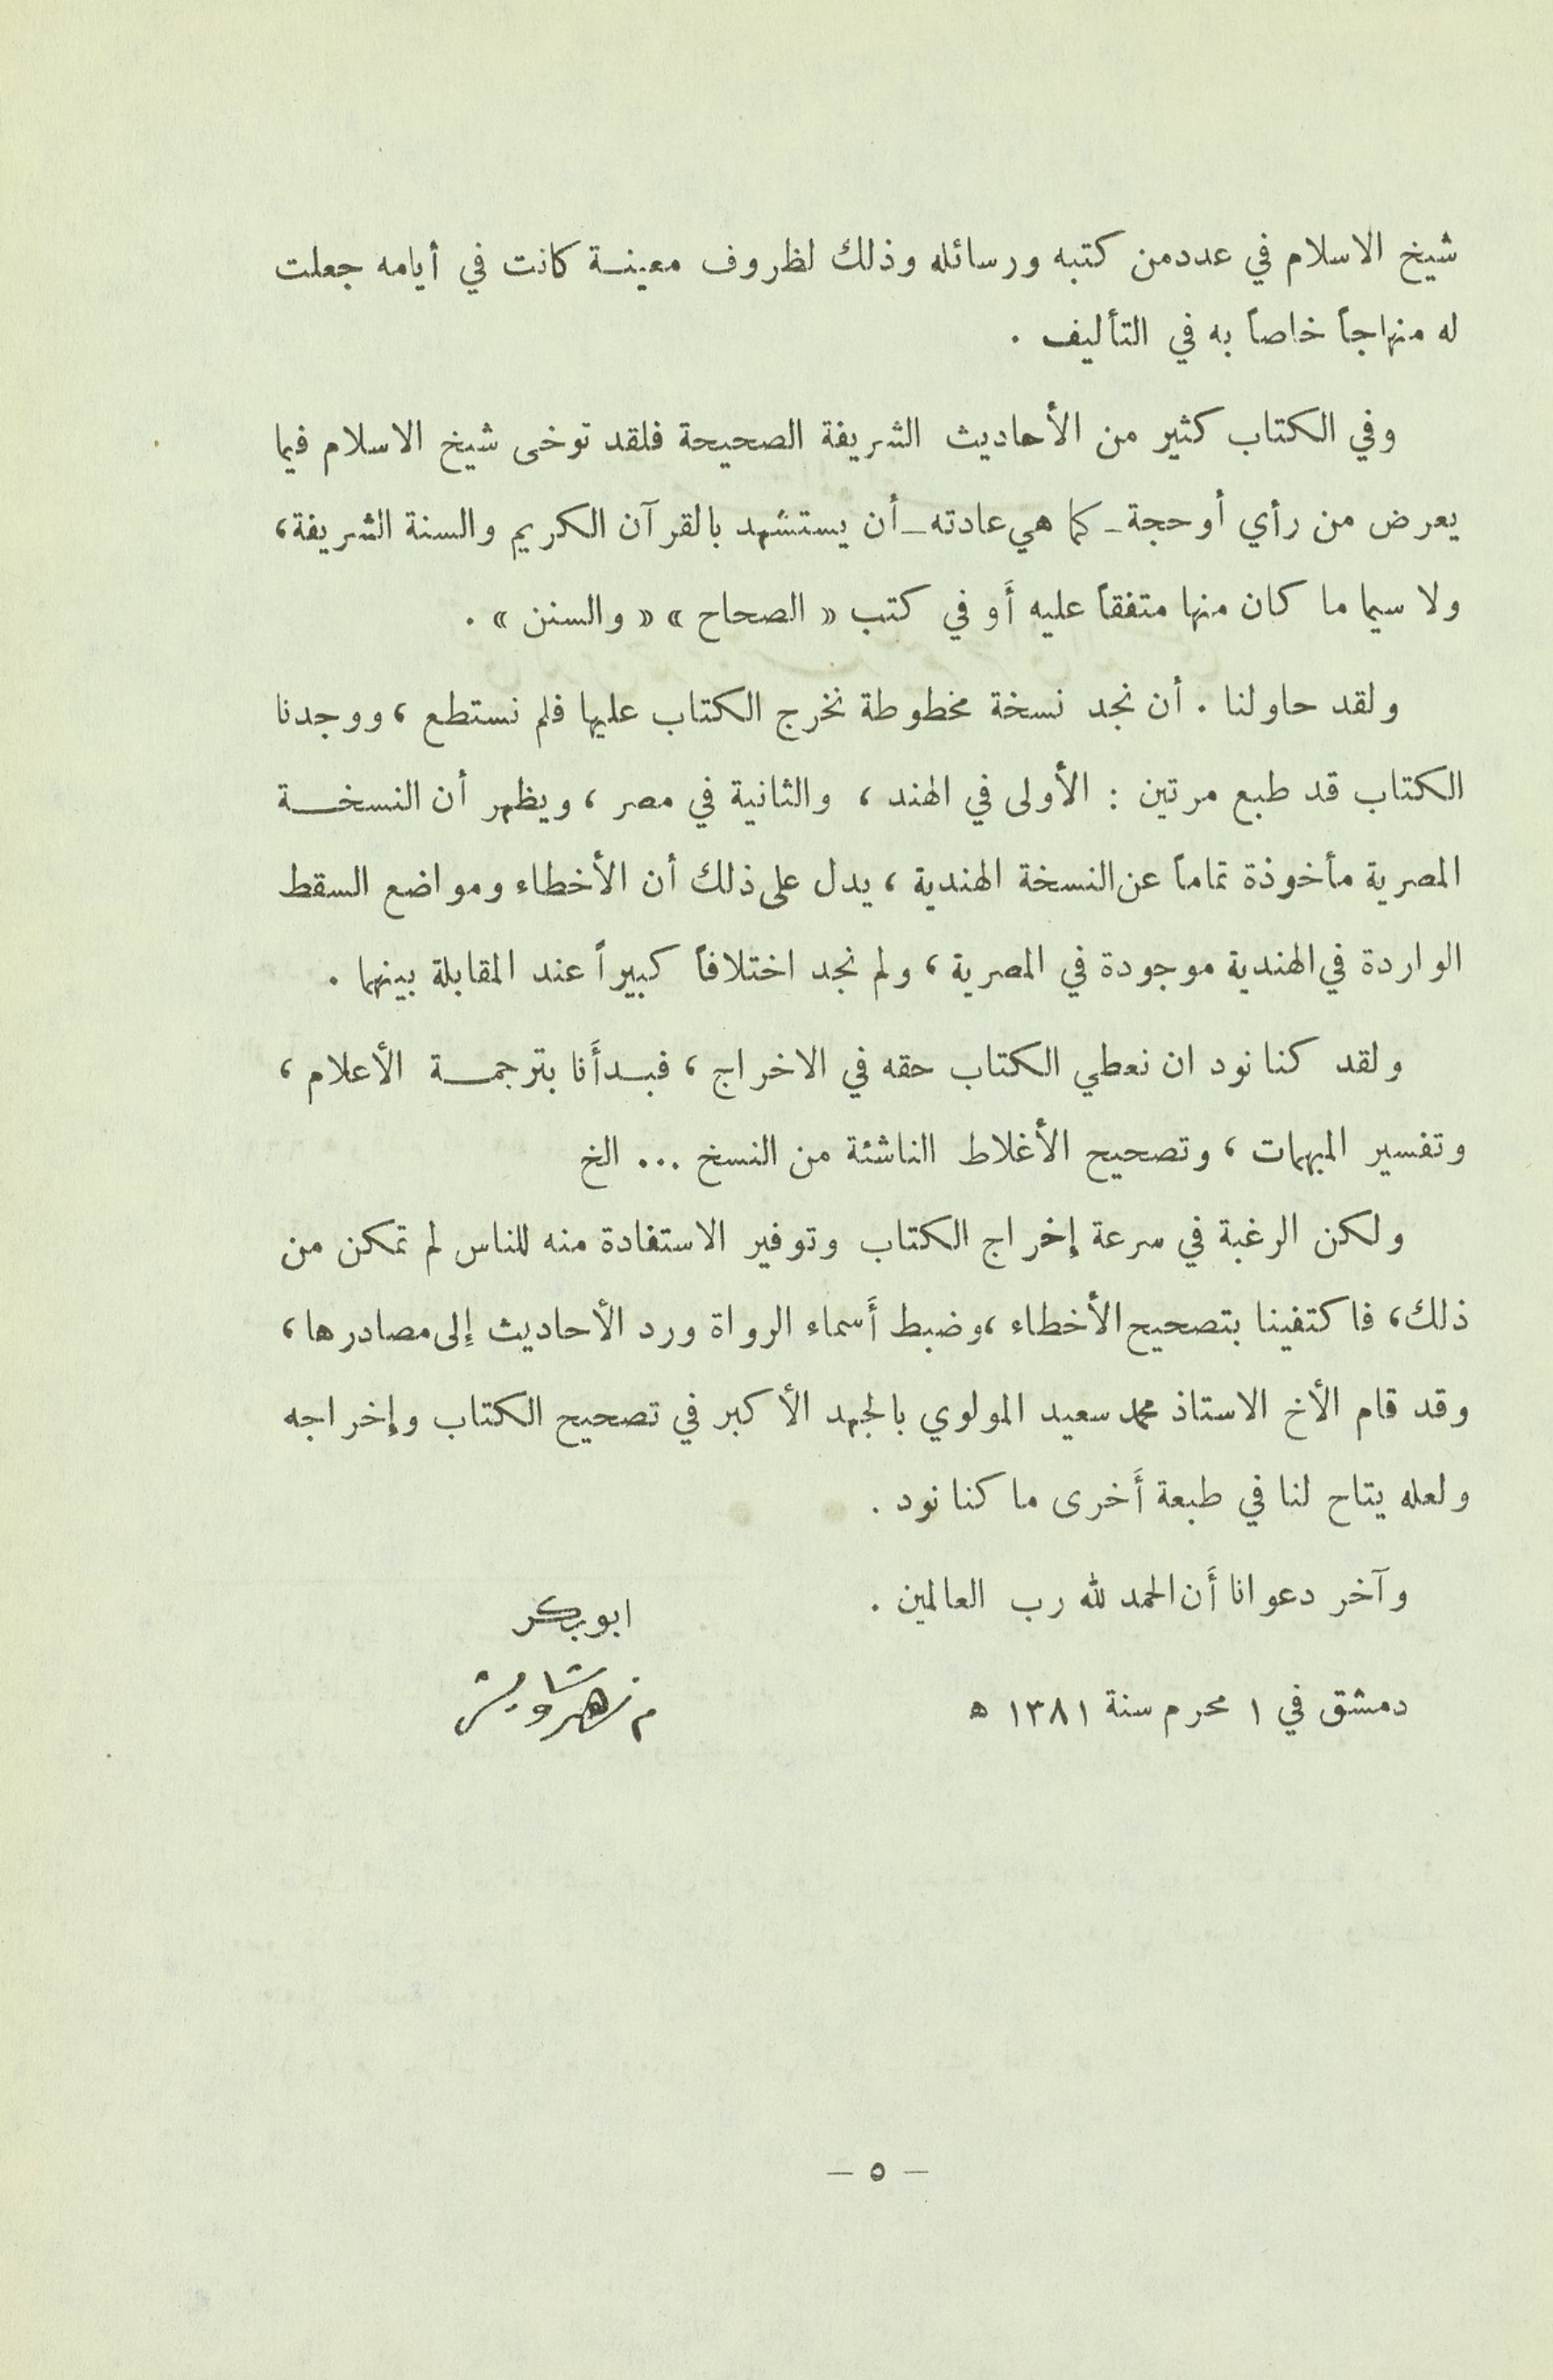 شيخ الاسلام في عدد من كتبه ورسائله وذلك لظروف معينة كانت في أيامه جعلت
له منهاجاً خاصاً به في التأليف .
وفي الكتاب كثير من الأحاديث الشريفة الصحيحة فلقد توخى شيخ الاسلام فيما
يعرض من رأي أو حجة ـ كما هي عادته ـ أن يستشهد بالقرآن الكريم والسنة الشريفة ،
ولا سيما ما كان منها متفقاً عليه أَو في كتب « الصحاح » « والسنن » .
ولقد حاولنا . أن نجد نسخة مخطوطة نخرج الكتاب عليها فلم نستطع ، ووجدنا
الكتاب قد طبع مرتين : الأولى في الهند ، والثانية في مصر ، ويظهر أن النسخة
المصرية مأخوذة تماماً عن النسخة الهندية ، يدل على ذلك أن الأخطاء ومواضع السقط
الواردة في الهندية موجودة في المصرية ، ولم نجد اختلافاً كبيراً عند المقابلة بينهما .
ولقد كنا نود ان نعطي الكتاب حقه في الاخراج ، فبدأَنا بترجمة الأعلام ،
وتفسير المبهمات ، وتصحيح الأغلاط الناشئة من النسخ ... الخ
ولكن الرغبة في سرعة إخراج الكتاب وتوفير الاستفادة منه للناس لم تمكن من
ذلك ، فاكتفينا بتصحيح الأخطاء ، وضبط أَسماء الرواة ورد الأحاديث إلى مصادرها ،
وقد قام الأخ الاستاذ محمد سعيد المولوي بالجهد الأكبر في تصحيح الكتاب وإخراجه
ولعله يتاح لنا في طبعة أَخرى ما كنا نود .
وآخر دعوانا أَن الحمد لله رب العالمين .
ابو بكر
دمشق في ١ محرم سنة ١٣٨١ ه
م زهير شاويش
— ٥ —